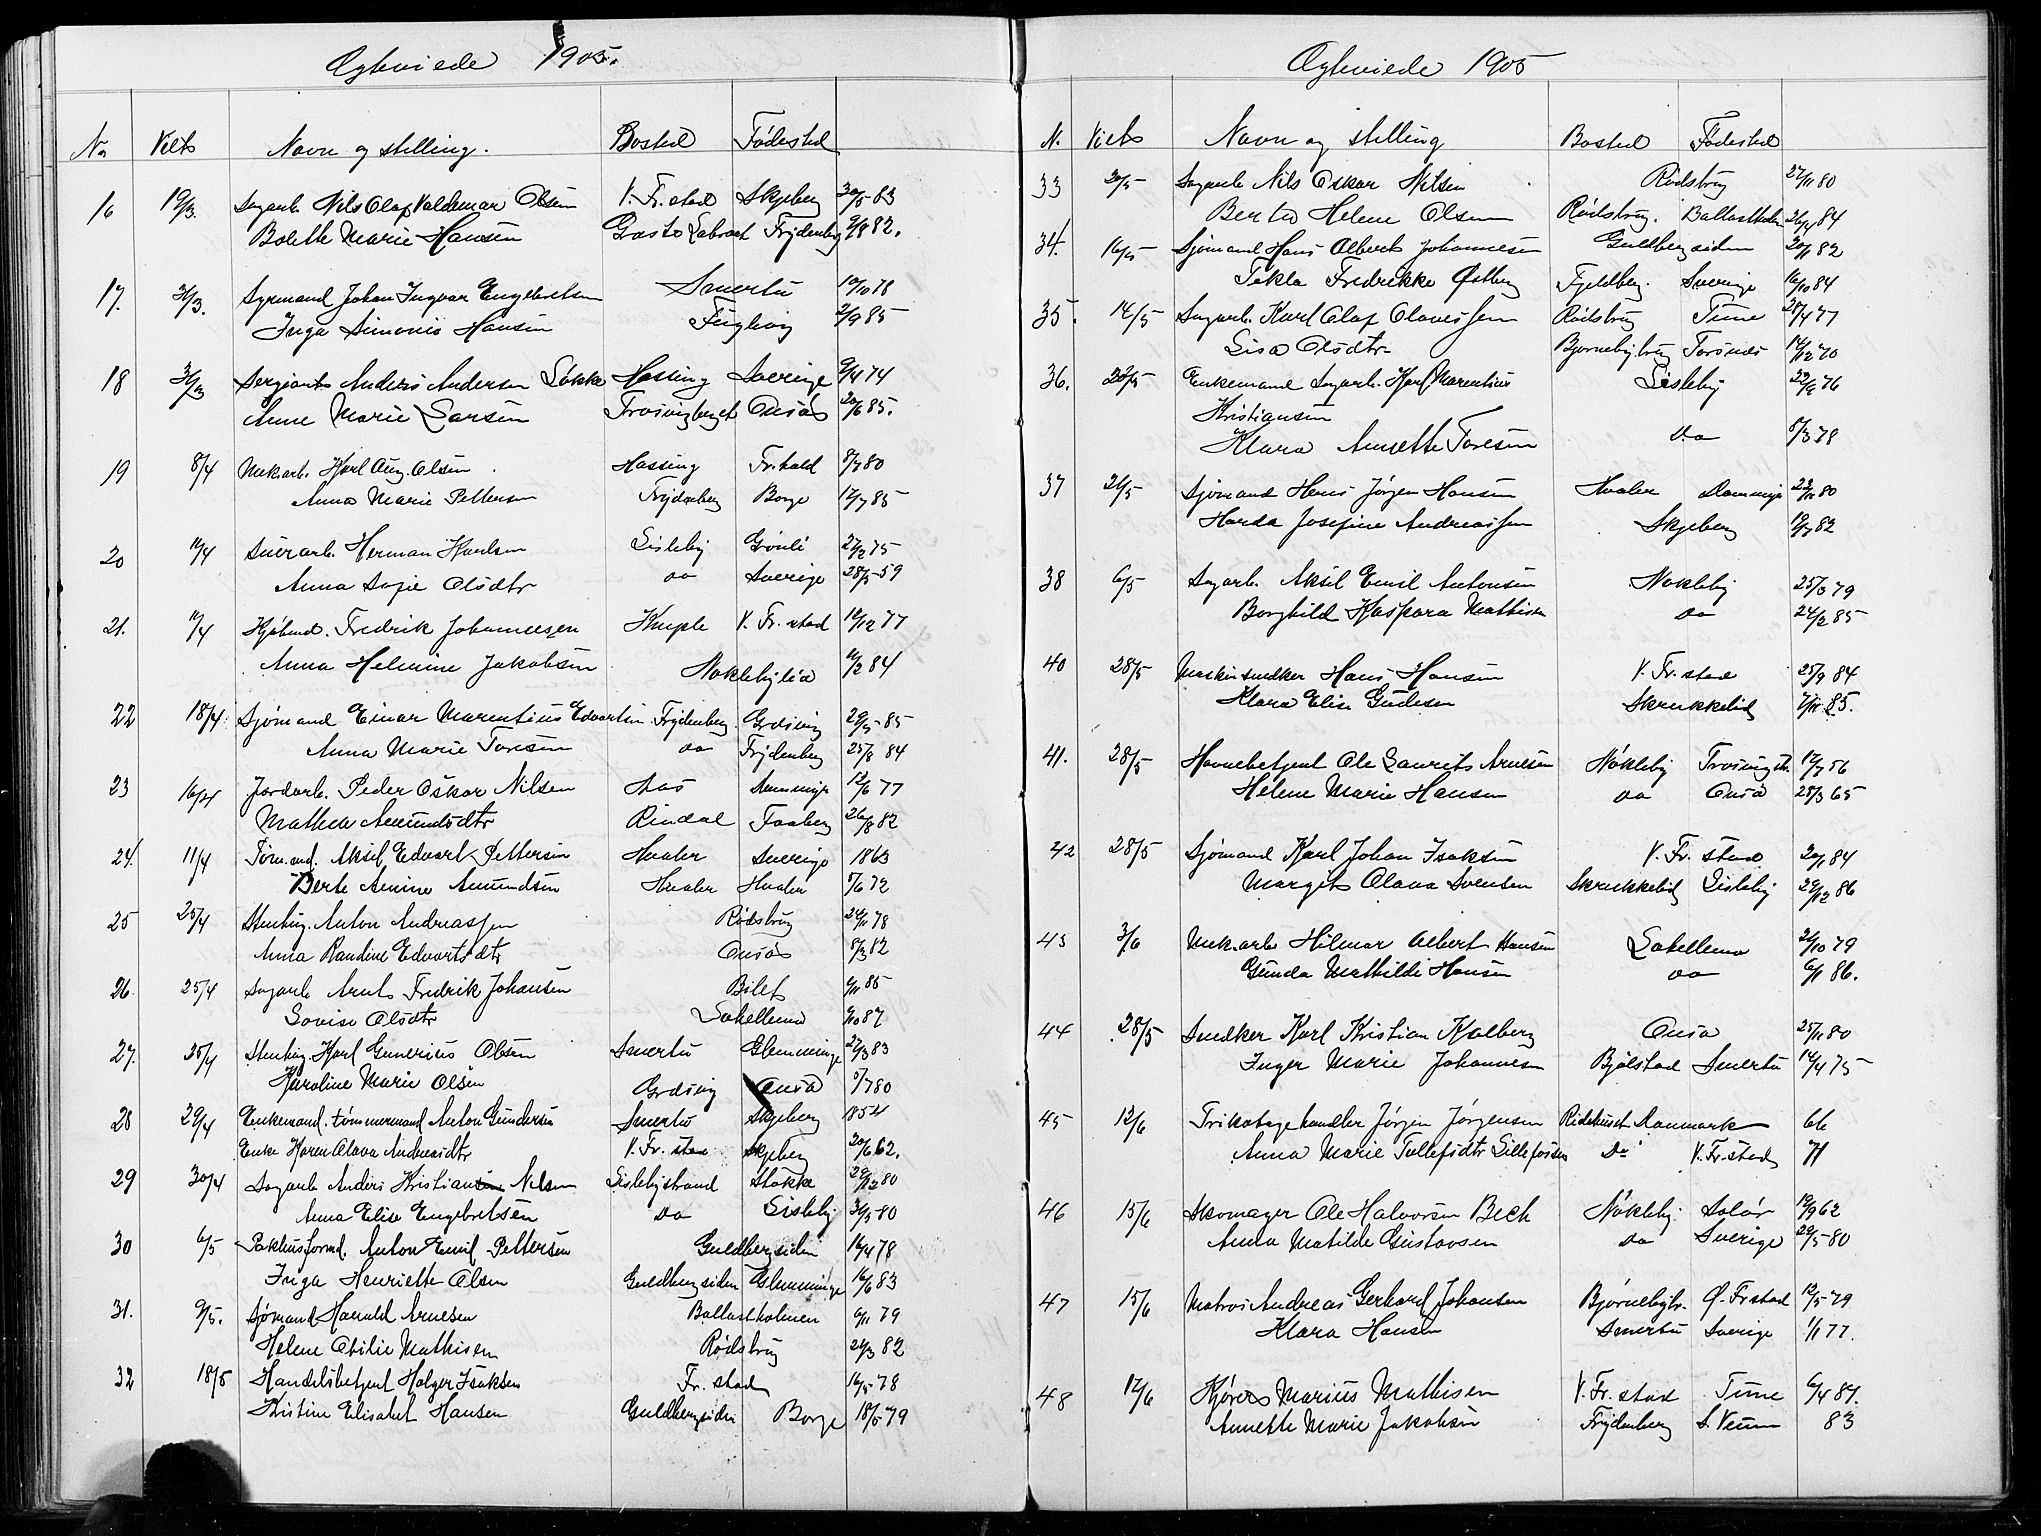 Ægteviede 1905.
No Viets Navn og stilling. Bosted Fødested
16 19/3. Sagarb. Nils Olaf Valdemar Olsen V. Fr. stad Skjeberg 30/5 83
Bolette Marie Hansen Frydenberg 9/8 82.
17. 31/3. Syrmand Johan Ingvar Engebretsen Smertu 10/10 78
Inga Simonie Hansen Fuglvig 2/9 85
18 31/3 Sergiant Anders Andersen Løkke Hassing Sverige 9/4 74
Anne Marie Larsen Trosvigberget Onsø 20/6 85.
19 8/4 Mek.arb. Karl Aug. Olsen Hassing Fr.hald 8/7 80
Anna Marie Pettersen Frydenberg Borge 12/7 85
20 Herman Karlsen Lisleby Grønli 27/2 75
Anna Sofie Olsdtr do Sverige 28/5 59
21. Kjøbmd. Fredrik Johannesen Kniple V. Fr. stad 12/12 77
Anna Helmine Jakobsen Noklebylia 11/2 84
22 18/4. Sjømand Einar Marentius Edvartsen Frydenberg Gressvig 29/5 85
Anna Marie Toresen do Frydenberg 25/8 84
23 16/4 Jordarb. Peder Oskar Nilsen Aas Glemminge 12/6 77
Mathea Amundsdtr Rindal Faaberg 26/8 82
24. 11/4 Tømmd. Aksel Edvart Pettersen Hvaler Sverige 1863
Berte Amine Amundsen Hvaler Hvaler 5/6 72
25 25/4 Stenhug. Anton Andreassen Rødsbrug 24/11 78
Anna Randine Edvartsdtr Onsø 8/3 82
26. 25/4 Sagarb Arnt Fredrik Johansen Bilet 9/11 85
Lovise Olsdtr Labellema 9/10 87
27. 25/4 Stenhug. Karl Gunerius Olsen Smertu Glemminge 27/3 83
Karoline Marie Olsen Gressvig Onsø 5/7 80
28 29/4 Enkemand. tømmermand Anton Gundersen Smertu Skjeberg 1854
Enke Karen Olava Andreasdtr V. Fr. stad Skjeberg 20/6 62.
29 30/4 Sagarb Anders Kristian Nilsen Lislebystrand Stokke 29/12 80
Anna Elise Engebretsen do Lisleby 31/5 80
30 6/5 Pakhusformd. Anton Emil Pettersen Guldbergsiden 16/4 78
Inga Henriette Olsen Guldbergsiden Glemminge 16/6 83
31. 9/5. Sjømand Harald Arnesen Ballastholmen 9/11 79
Helene Otilie Mathisen Rødsbrug 21/3 82
32 18/5 Handelsbetjent Holger Isaksen Fr. stad 16/5 78
Kristine Elisabet Hansen Guldbergsiden Borge 18/5 79
Ægteviede 1905
N. Viets Navn og stilling Bosted Fødested
33 30/5 Sagarb Nils Oskar Nilsen Rødsbrug 27/11 80
Berta Helene Olsen Rødsbrug. Ballastholm 26/4 84
34. 16/5 Sjømand Hans Albert Johannesen Guldbergsiden 20/1 82
Tekla Fredrikke Østberg Fjeldberg. Sverige 16/10 84
35. 14/5 Sagarb. Karl Olaf Olavessen Rødsbrug Tune 28/4 77
Lisa Olsdtr Bjørnebybrug Torsnes 14/12 70
36. 28/5 Enkemand Sagarb. Karl Marentius Lisleby 22/2 76
Kristiansen
Klara Annette Toresen do 5/3 78
37 21/5 Sjømand Hans Jørgen Hansen Hvaler Glemminge 23/11 80
Harda Josefine Andreassen Skjeberg 19/7 82
38 6/5 Sagarb. Aksel Emil Antonsen Nokleby 25/3 79
Borghild Kaspara Mathisen do 24/2 85
40 28/5 Maskinsnedker Hans Hansen V. Fr. stad 25/9 84
Klara Elise Gudesen Skrukkelid 7/11 85.
41. 28/5 Havnebetjent Ole Laurits Arnesen Nökleby 17/7 56
Helene Marie Hansen do Onsø 28/3 65
42 28/5 Sjømand Karl Johan Isaksen V. Fr. stad 20/1 84
Margit Olava Svensen Skrukkelid Lisleby 29/12 86
43 3/6 Mek.arb Hilmar Albert Hansen Labellema 26/10 79
Gunda Mathilde Hansen do 6/1 86.
44 28/5 Snedker Karl Kristian Kalberg Onsø 25/11 80
Inger Marie Johannesen Bjølstad Smertu 14/4 75
45 12/6 Trikotagehandler Jørgen Jørgensen Ridehuset Danmark 66
Anna Marie Tollefsdtr Do V. Fr. stad 71
46 15/6 Skomager Ole Halvorsen Bech Nökleby Solør 19/9 62
Anna Matilde Gustavsen do Sverige 29/5 80
47 15/6 Matros Andreas Gerhard Johansen Bjørnebybr. Ø. Fr stad 12/5 79
Klara Hansen Smertu Sverige 1/1 77.
48 12/6 Kjører Marius Mathisen V. Fr. stad Tune 6/4 87.
Annette Marie Jakobsen Frydenberg S. Veum 83